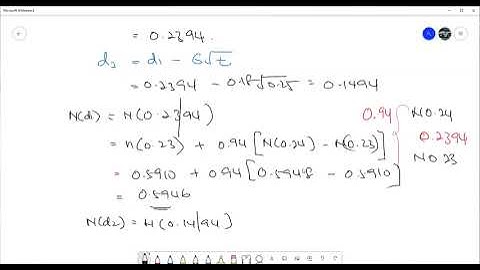 = 0.2394.
d₂ = d₁ - 6√t
= 0.2394 - 0.18√0.25 = 0.1494
N(d₁) = N(0.23|94)
= n(0.23) + 0.94 [N(0.24) - N(0.23)]
= 0.5910 + 0.94 [0.5948 - 0.5910]
= 0.5946
N(d₂) = N(0.14|94)
0.94
N0.24
0.2394
N0.23